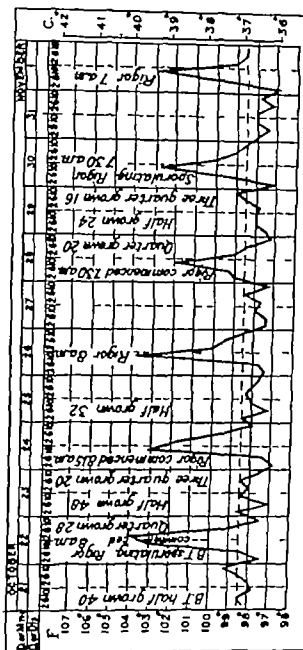 OCTOBER NOVEMBER
21 22 23 24 25 26 27 28 29 30 31
F C
107
106
105
104
103
102
101
100
99
98
97
96
42
41
40
39
38
37
36
B.T half grown 40
B.T sporulating Rigor
8 a.m.
Quarter grown 28
Half grown 48
Three quarter grown 20
Rigor commenced 8.15 a.m.
Half grown 32
Rigor 8 a.m.
Rigor commenced 7.30 a.m.
Quarter grown 20
Half grown 24
Three quarter grown 16
Sporulating Rigor
7 30 a.m.
Rigor 7 a.m.